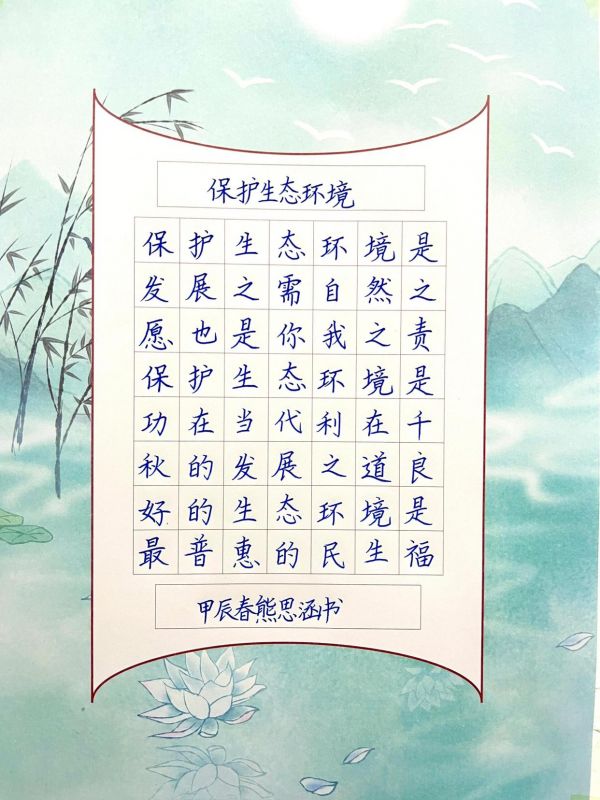 保护生态环境
保护生态环境是
发展之需自然之
愿也是你我之责
保护生态环境是
功在当代利在千
秋的发展之道良
好的生态环境是
最普惠的民生福
甲辰春熊思涵书